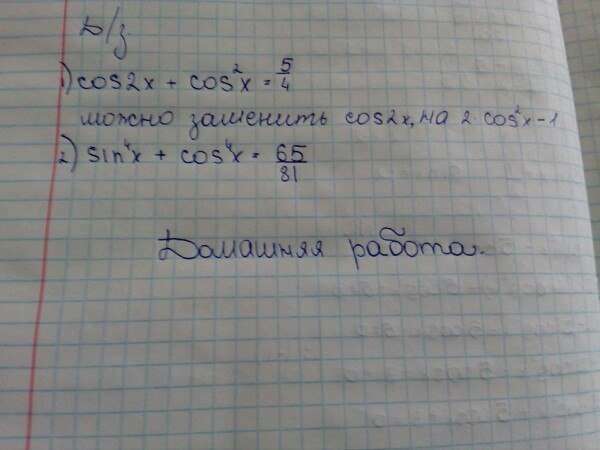 Д/з
1) cos2x + cos²x = 5/4
можно заменить cos2x, на 2·cos²x-1
2) sin⁴x + cos⁴x = 65/81
Домашняя работа.